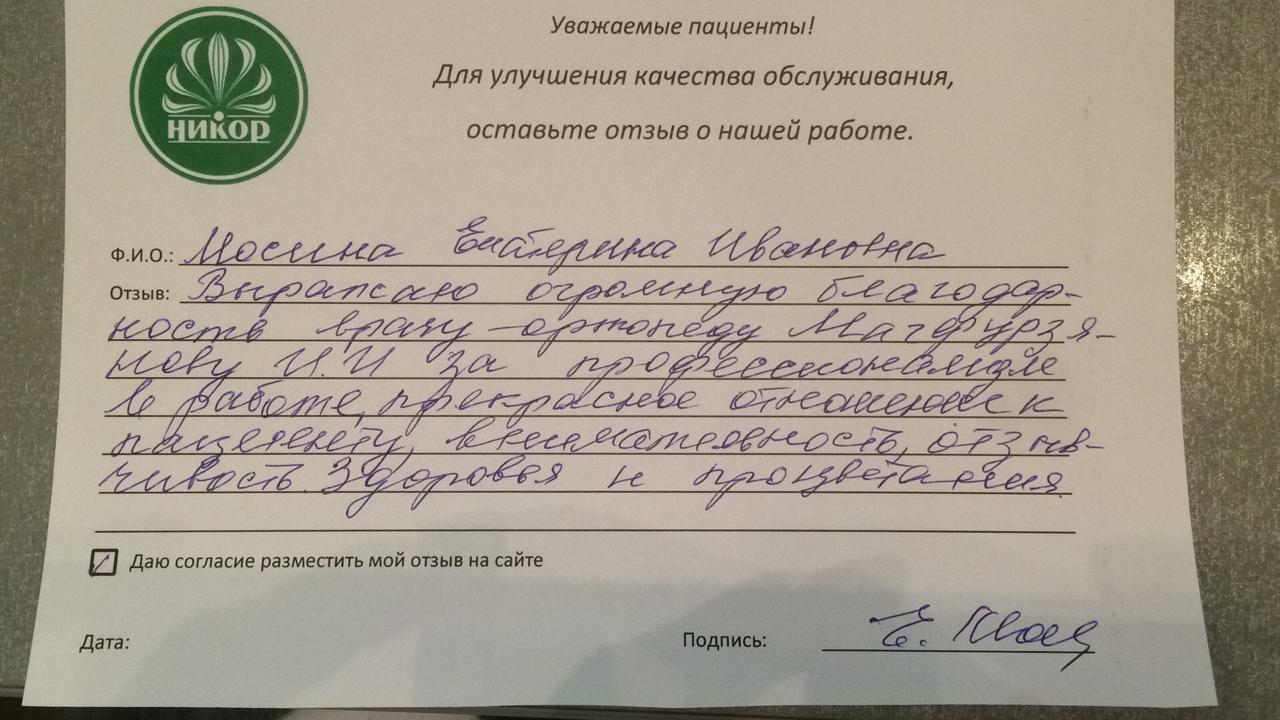 НИКОР
Уважаемые пациенты!
Для улучшения качества обслуживания,
оставьте отзыв о нашей работе.
Ф.И.О.: Мосина Екатерина Ивановна
Отзыв: Выражаю огромную благодар-
ность врачу-ортопеду Магфурзя-
нову И.И за профессионализм
в работе, прекрасное отношение к
пациенту, внимательность, отзыв-
чивость. Здоровья и процветания.
Даю согласие разместить мой отзыв на сайте
Дата:
Подпись: Е.